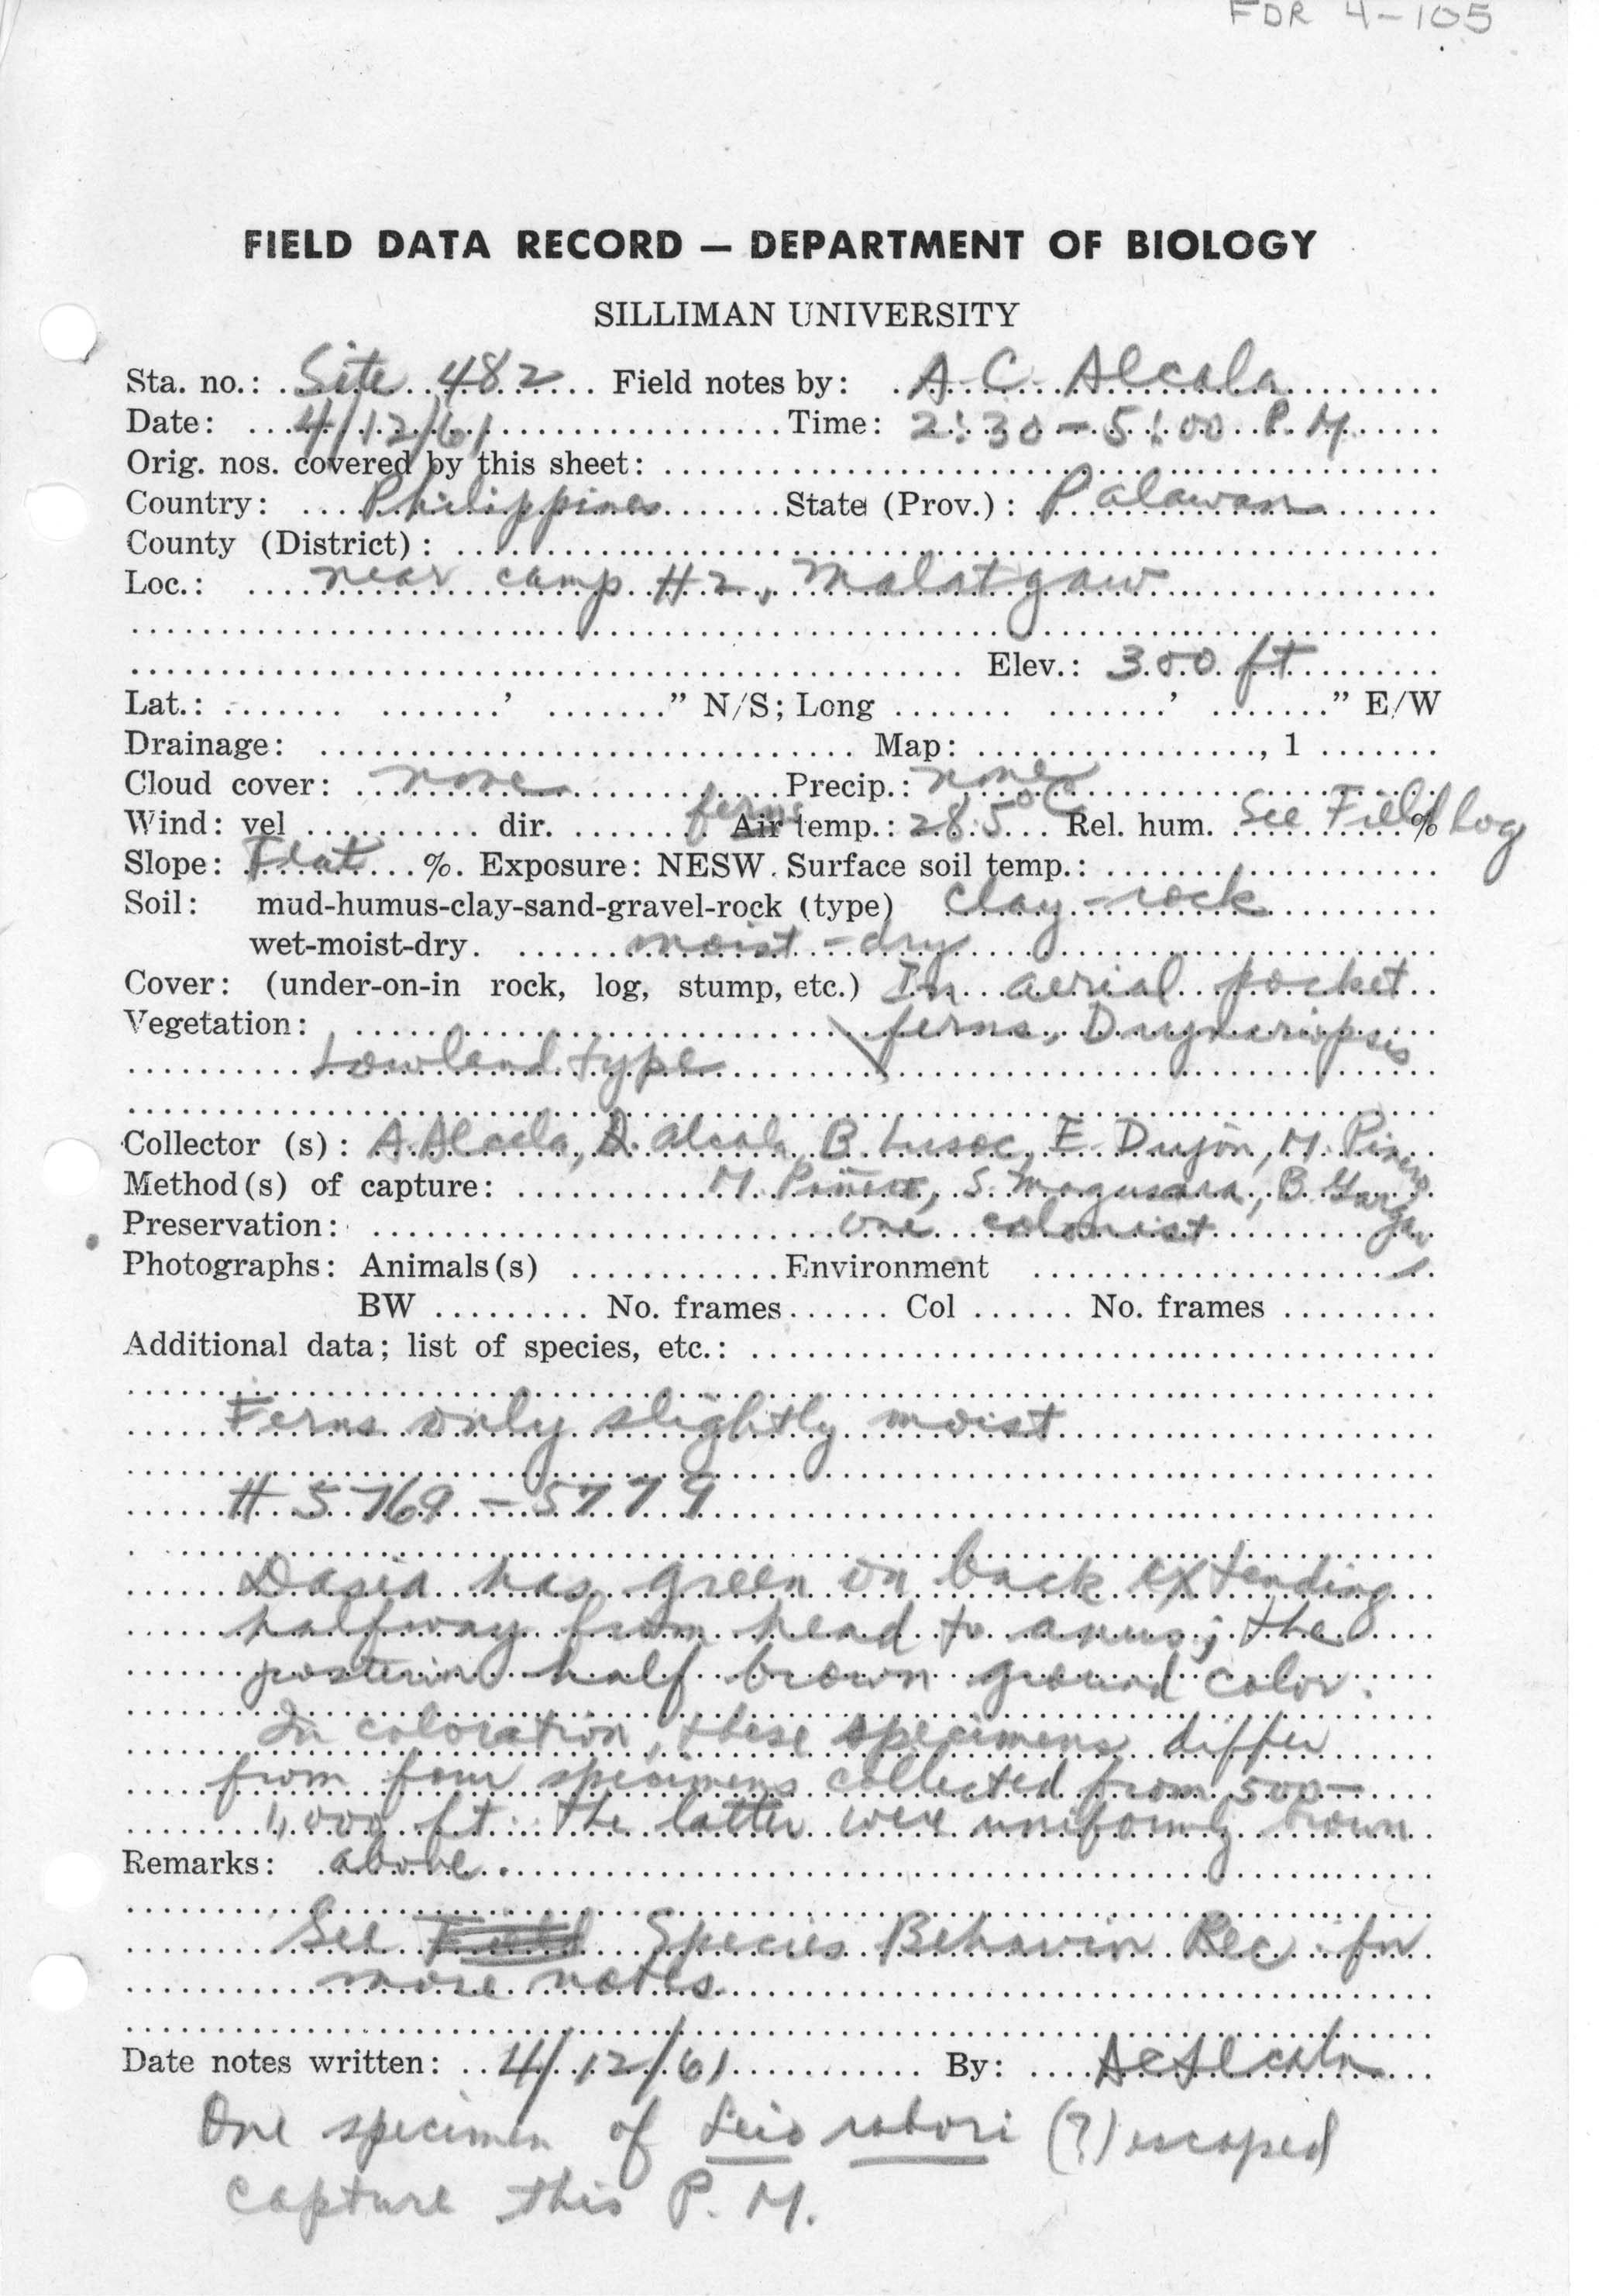 FDR 4-105
FIELD DATA RECORD — DEPARTMENT OF BIOLOGY
SILLIMAN UNIVERSITY
Sta. no.: Site 482 Field notes by: A. C. Alcala
Date: 4/12/61 Time: 2:30 - 5:00 P.M.
Orig. nos. covered by this sheet:
Country: Philippines State (Prov.): Palawan
County (District):
Loc.: near camp #2, Malatgaw
Elev.: 300 ft
Lat.: ' " N/S; Long ' " E/W
Drainage: Map: , 1
Cloud cover: none Precip.: none
Wind: vel dir. ferns Air temp.: 28.5°C Rel. hum. See Field Log %
Slope: Flat %. Exposure: NESW. Surface soil temp.:
Soil: mud-humus-clay-sand-gravel-rock (type) clay-rock
wet-moist-dry. moist-dry
Cover: (under-on-in rock, log, stump, etc.) In aerial pocket
Vegetation: ferns, Drynariopsis
Lowland type
Collector (s): A. Alcala, D. Alcala, B. Lusoc, E. Dujon, M. Pinero
Method(s) of capture: M. Piñero, S. Magusara, B. Gargar
Preservation: one colonist
Photographs: Animals(s) Environment
BW No. frames Col No. frames
Additional data; list of species, etc.:
Ferns only slightly moist
# 5769 - 5779
Dasia has green on back extending
halfway from head to anus; the
posterior half brown ground color.
In coloration, these specimens differ
from four specimens collected from 500-
1,000 ft. The latter were uniformly brown
Remarks: above.
See Field Species Behavior Rec. for
more notes.
Date notes written: 4/12/61 By: ACAlcala
One specimen of Leio sabori (?) escaped
capture this P. M.